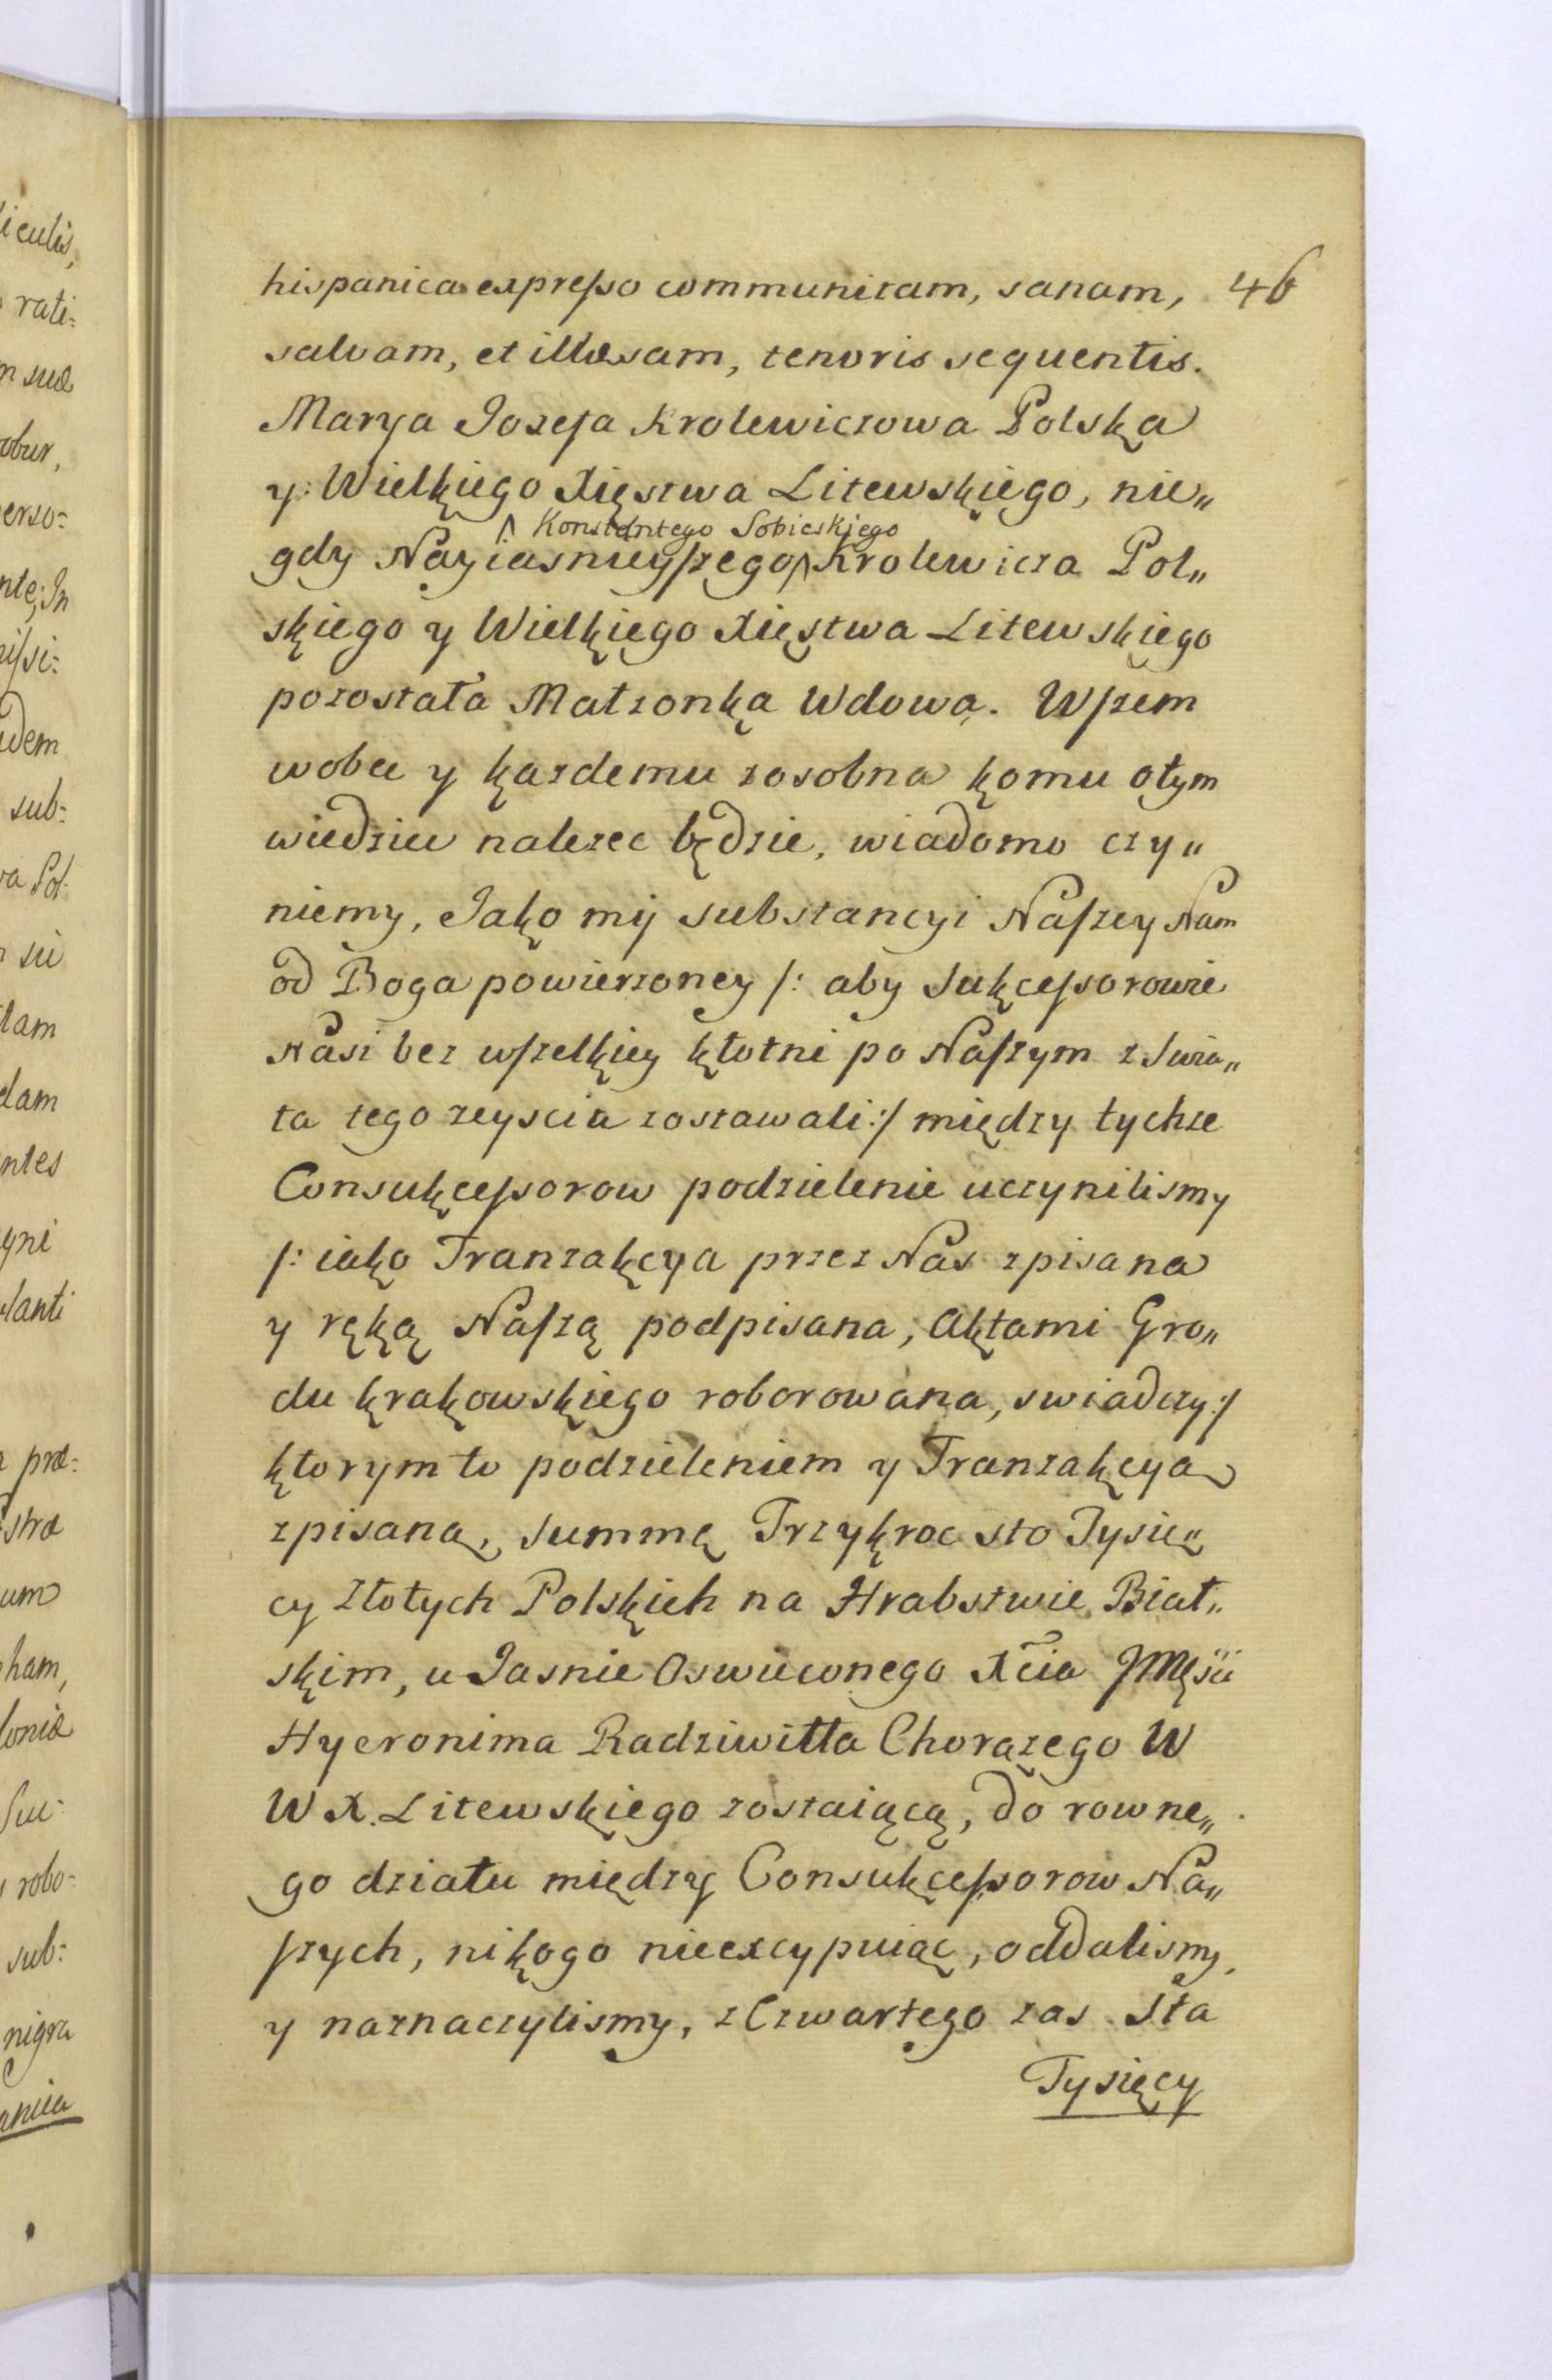 hispanica expresso communitam, sanam, 46
salvam, et illæsam, tenoris sequentis.
Marya Jozefa Krolewiczowa Polska
y Wielkiego Xięstwa Litewskiego, nie„
^ Konstantego Sobieskiego
gdy Nayiasnieyszego ^ Krolewicza Pol„
skiego y Wielkiego Xięstwa Litewskiego
pozostała Małzonka Wdowa. Wszem
wobec y kazdemu zosobna komu otym
wiedziec nalezec będzie, wiadomo czy„
niemy, Jako my substancyi Naszey Nam
od Boga powierzoney /: aby Sukcessorowie
Nasi bez wszelkiey kłotni po Naszym z Swia„
ta tego zeyscia zostawali :/ między tychze
Consukcessorow podzielenie uczynilismy
/: iako Tranzakcya przez Nas zpisana
y ręką Naszą podpisana, Aktami Gro„
du krakowskiego roborowana, swiadczy :/
ktorym to podzieleniem y Tranzakcya
zpisaną, Summę Trzykroc sto Tysię„
cy Złotych Polskich na Hrabstwie Biał„
skim, u Jasnie Oswieconego Xcia JMęsci
Hyeronima Radziwiłła Chorązego W
W X. Litewskiego zostaiącą, do rowne„
go działu między Consukcessorow Na„
szych, nikogo nieexcypuiąc, oddalismy,
y naznaczylismy, z Czwartego zas Sta
Tysięcy